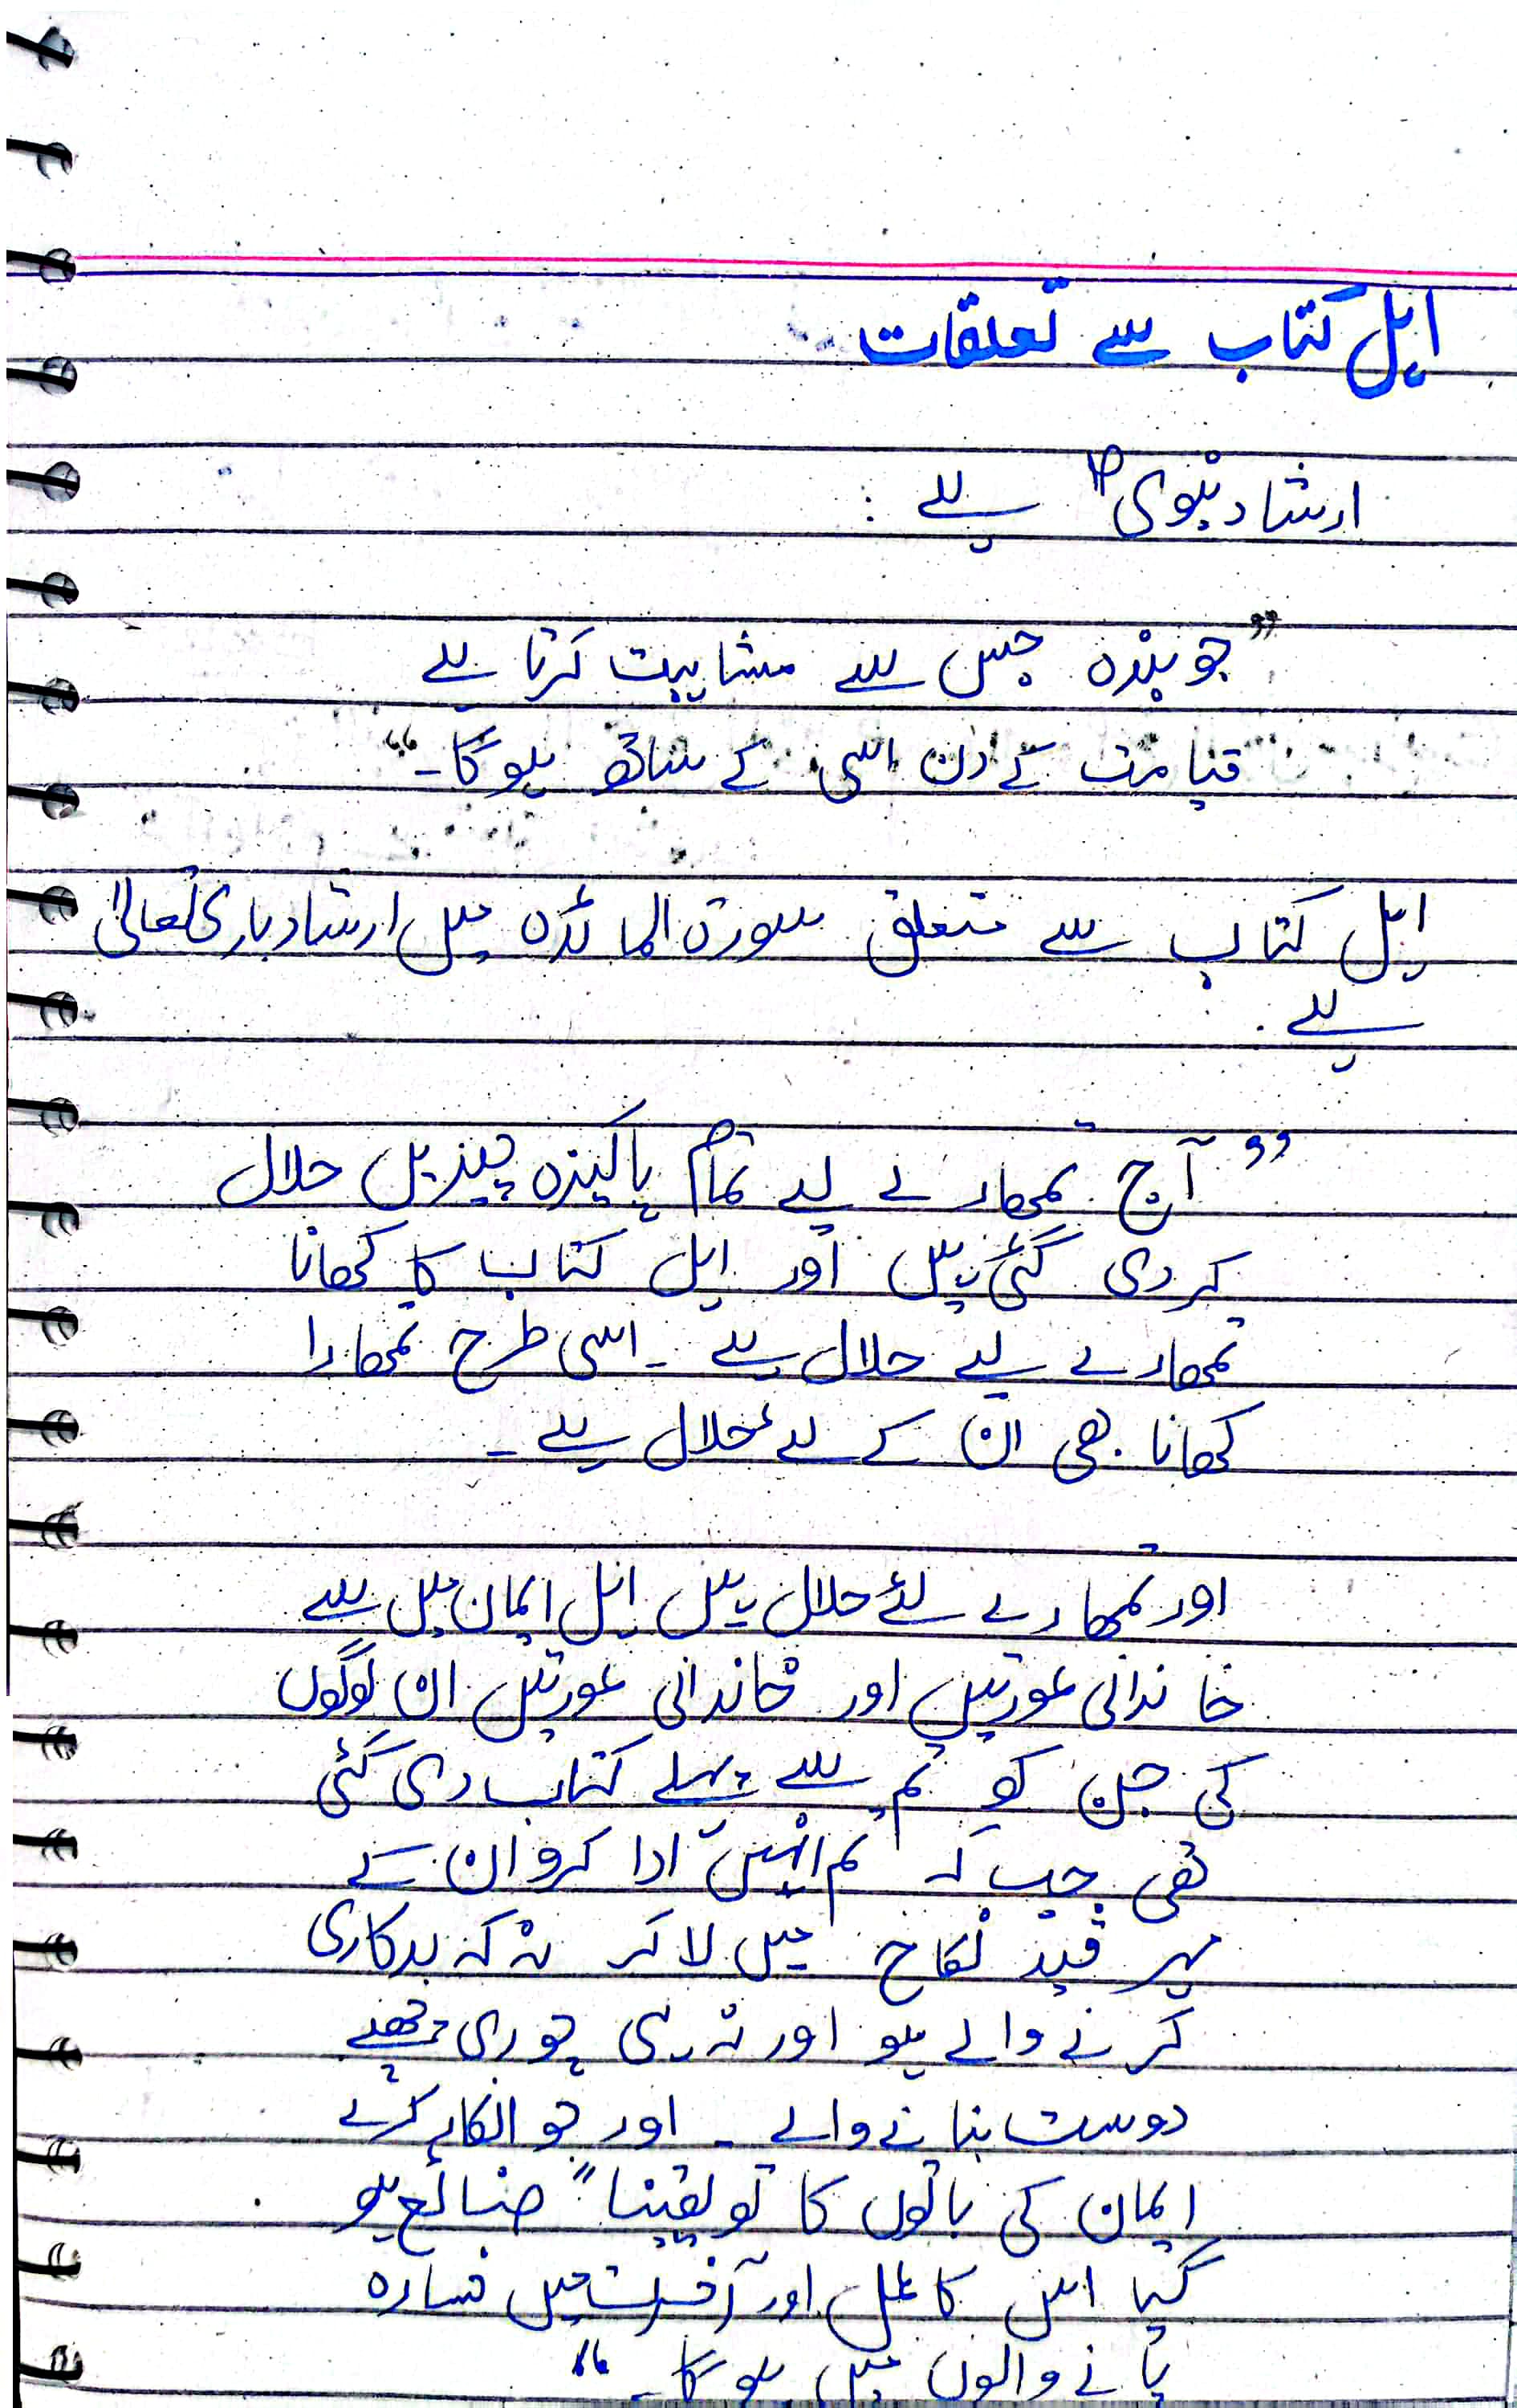 اہل کتاب سے تعلقات
ارشاد نبویؐ ہے :
”جو بندہ جس سے مشابہت کرتا ہے
قیامت کے دن اسی کے ساتھ ہوگا۔“
اہل کتاب سے متعلق سورۃ المائدہ میں ارشاد باری تعالیٰ
ہے:
”آج تمھارے لیے تمام پاکیزہ چیزیں حلال
کر دی گئی ہیں اور اہل کتاب کا کھانا
تمھارے لیے حلال ہے ۔ اسی طرح تمھارا
کھانا بھی ان کے لئے حلال ہے ۔
اور تمھارے لئے حلال ہیں اہل ایمان میں سے
خاندانی عورتیں اور خاندانی عورتیں ان لوگوں
کی جن کو تم سے پہلے کتاب دی گئی
تھی جب کہ تم انہیں ادا کرو ان کے
مہر قید نکاح میں لا کر نہ کہ بدکاری
کرنے والے ہو اور نہ ہی چوری چھپے
دوست بنانے والے ۔ اور جو انکار کرے
ایمان کی باتوں کا تو یقیناً ضائع ہو
گیا اس کا عمل اور آخرت میں خسارہ
پانے والوں میں ہوگا ۔“